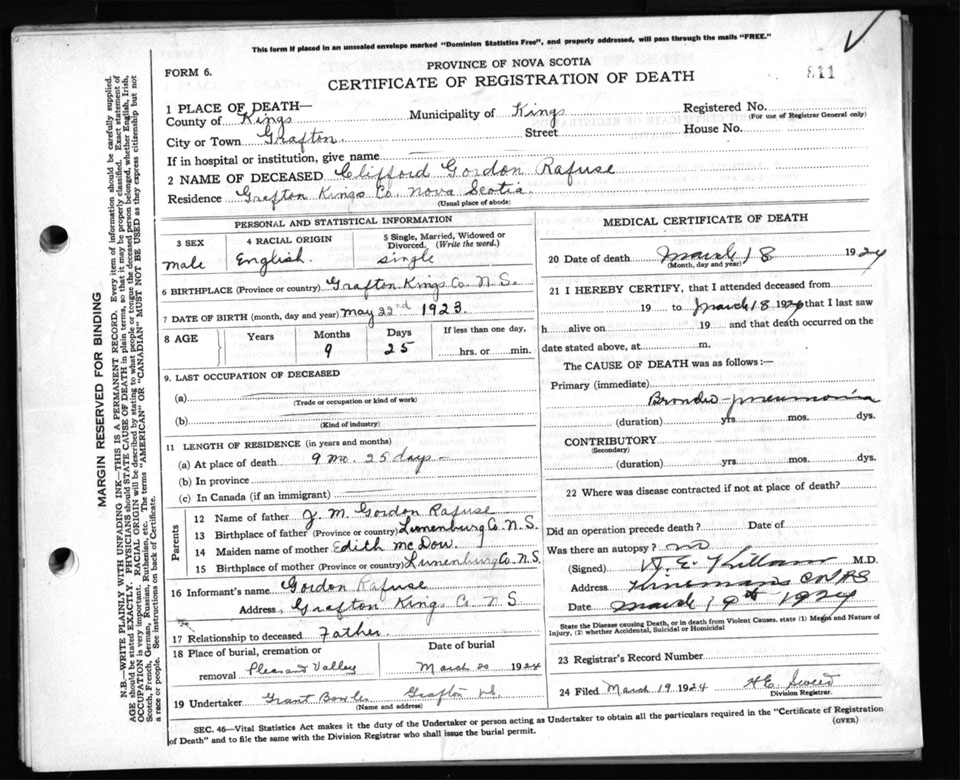 This form if placed in an unsealed envelope marked "Dominion Statistics Free", and properly addressed, will pass through the mails "FREE."
PROVINCE OF NOVA SCOTIA
FORM 6.
CERTIFICATE OF REGISTRATION OF DEATH
811
1 PLACE OF DEATH—
County of Kings Municipality of Kings Registered No.
(For use of Registrar General only)
City or Town Grafton Street House No.
If in hospital or institution, give name
2 NAME OF DECEASED Clifford Gordon Rafuse
Residence Grafton Kings Co. Nova Scotia
(Usual place of abode)
PERSONAL AND STATISTICAL INFORMATION
3 SEX 4 RACIAL ORIGIN 5 Single, Married, Widowed or Divorced. (Write the word.)
male English. single
6 BIRTHPLACE (Province or country) Grafton Kings Co. N.S.
7 DATE OF BIRTH (month, day and year) May 22nd 1923.
8 AGE Years Months Days If less than one day,
9 25 hrs. or min.
9. LAST OCCUPATION OF DECEASED
(a)
(Trade or occupation or kind of work)
(b)
(Kind of industry)
11 LENGTH OF RESIDENCE (in years and months)
(a) At place of death 9 mo. 25 days
(b) In province
(c) In Canada (if an immigrant)
Parents
12 Name of father J. M. Gordon Rafuse
13 Birthplace of father (Province or country) Lunenburg Co. N.S.
14 Maiden name of mother Edith McDow.
15 Birthplace of mother (Province or country) Lunenburg Co. N.S.
16 Informant's name Gordon Rafuse
Address Grafton Kings Co N S
17 Relationship to deceased Father
18 Place of burial, cremation or removal Pleasant Valley
Date of burial
March 20 1924
19 Undertaker Grant Bowles Grafton N.S.
(Name and address)
MEDICAL CERTIFICATE OF DEATH
20 Date of death March 18 1924
(Month, day and year)
21 I HEREBY CERTIFY, that I attended deceased from
19 to March 18 1924 that I last saw
h alive on 19 and that death occurred on the
date stated above, at m.
The CAUSE OF DEATH was as follows:—
Primary (immediate)
Broncho-pneumonia
(duration) yrs mos. dys.
CONTRIBUTORY
(Secondary)
(duration) yrs. mos. dys.
22 Where was disease contracted if not at place of death?
Did an operation precede death? Date of
Was there an autopsy? no
(Signed) W. E. Killam M.D.
Address
Date March 19th 1924
State the Disease causing Death, or in death from Violent Causes, state (1) Means and Nature of Injury, (2) whether Accidental, Suicidal or Homicidal
23 Registrar's Record Number
24 Filed March 19 1924
Division Registrar.
SEC. 46—Vital Statistics Act makes it the duty of the Undertaker or person acting as Undertaker to obtain all the particulars required in the "Certificate of Registration of Death" and to file the same with the Division Registrar who shall issue the burial permit.
(OVER)
MARGIN RESERVED FOR BINDING
N.B.—WRITE PLAINLY WITH UNFADING INK—THIS IS A PERMANENT RECORD. Every item of information should be carefully supplied.
AGE should be stated EXACTLY. PHYSICIANS should STATE CAUSE OF DEATH in plain terms, so that it may be properly classified. Exact statement of
OCCUPATION is very important. RACIAL ORIGIN will be described by stating to what people or tongue the deceased person belonged, whether English, Irish,
Scotch, French, German, Russian, Ruthenian, etc. The terms "AMERICAN" OR "CANADIAN" MUST NOT BE USED as they express citizenship but not
a race or people. See instructions on back of Certificate.